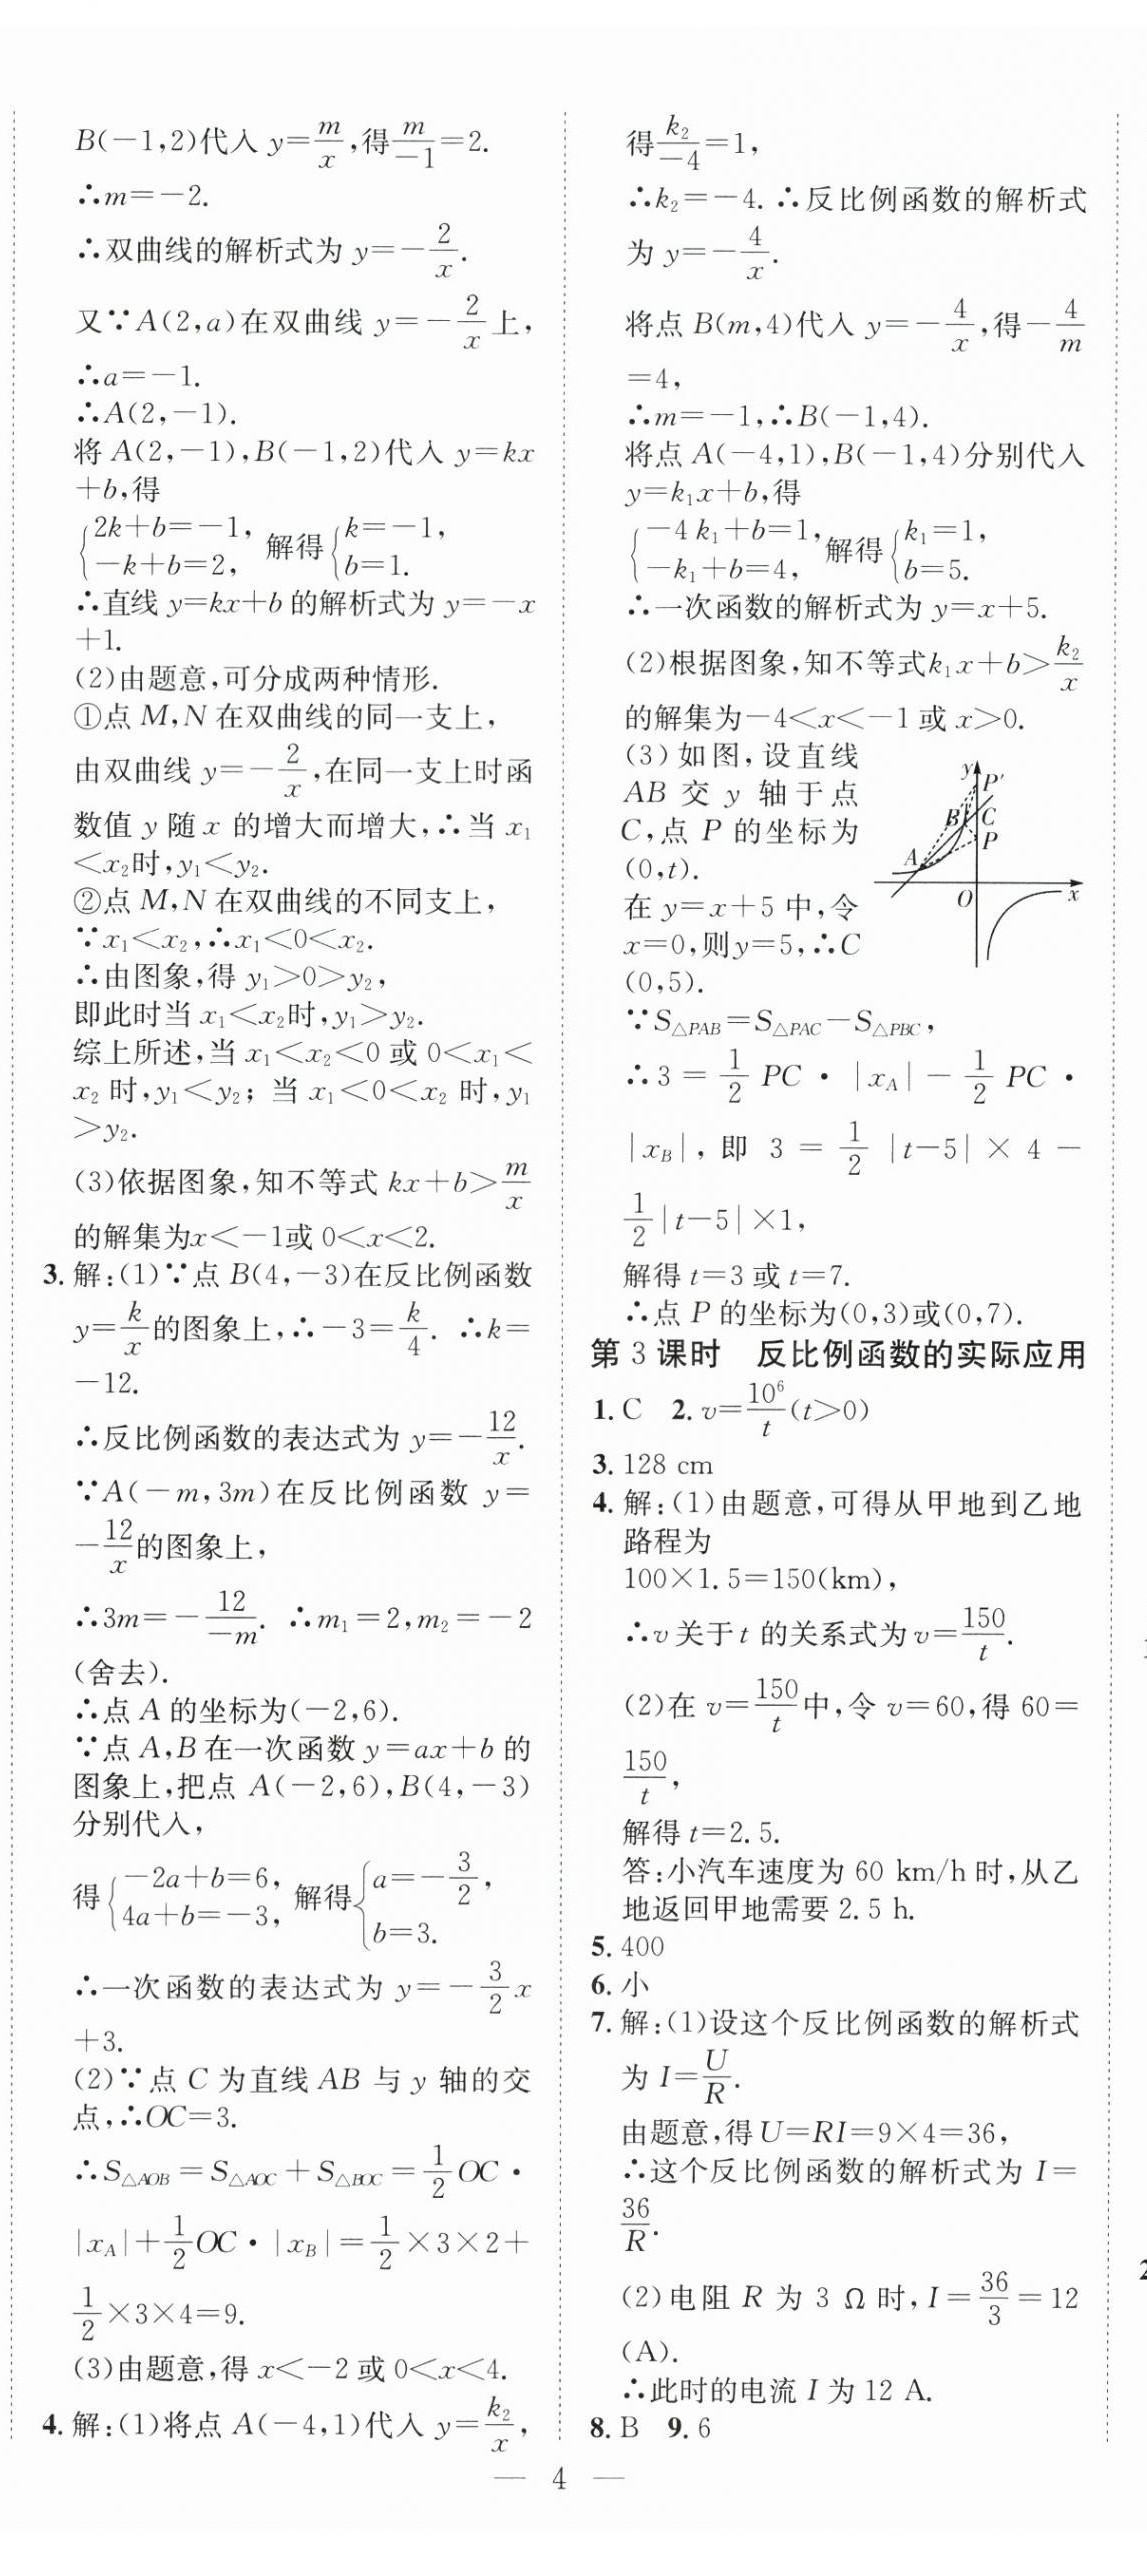 B(-1,2)代入 y=m/x,得m/-1=2.
∴m=-2.
∴双曲线的解析式为 y=-2/x.
又∵A(2,a)在双曲线 y=-2/x上,
∴a=-1.
∴A(2,-1).
将 A(2,-1),B(-1,2)代入 y=kx
+b,得
{2k+b=-1, -k+b=2, 解得{k=-1, b=1.
∴直线 y=kx+b 的解析式为 y=-x
+1.
(2)由题意,可分成两种情形.
①点 M,N 在双曲线的同一支上,
由双曲线 y=-2/x,在同一支上时函
数值 y 随 x 的增大而增大,∴当 x₁
<x₂时,y₁<y₂.
②点 M,N 在双曲线的不同支上,
∵x₁<x₂,∴x₁<0<x₂.
∴由图象,得 y₁>0>y₂,
即此时当 x₁<x₂时,y₁>y₂.
综上所述,当 x₁<x₂<0 或 0<x₁<
x₂ 时,y₁<y₂; 当 x₁<0<x₂ 时,y₁
>y₂.
(3)依据图象,知不等式 kx+b>m/x
的解集为x<-1或 0<x<2.
3. 解:(1)∵点 B(4,-3)在反比例函数
y=k/x的图象上,∴-3=k/4. ∴k=
-12.
∴反比例函数的表达式为 y=-12/x.
∵A(-m,3m)在反比例函数 y=
-12/x的图象上,
∴3m=-12/-m. ∴m₁=2,m₂=-2
(舍去).
∴点 A 的坐标为(-2,6).
∵点 A,B 在一次函数 y=ax+b 的
图象上,把点 A(-2,6),B(4,-3)
分别代入,
得{-2a+b=6, 4a+b=-3, 解得{a=-3/2, b=3.
∴一次函数的表达式为 y=-3/2x
+3.
(2)∵点 C 为直线 AB 与 y 轴的交
点,∴OC=3.
∴S△AOB=S△AOC+S△BOC=1/2OC·
|xA|+1/2OC·|xB|=1/2×3×2+
1/2×3×4=9.
(3)由题意,得 x<-2 或 0<x<4.
4. 解:(1)将点 A(-4,1)代入 y=k₂/x,
得k₂/-4=1,
∴k₂=-4. ∴反比例函数的解析式
为 y=-4/x.
将点 B(m,4)代入 y=-4/x,得-4/m
=4,
∴m=-1,∴B(-1,4).
将点 A(-4,1),B(-1,4)分别代入
y=k₁x+b,得
{-4k₁+b=1, -k₁+b=4, 解得{k₁=1, b=5.
∴一次函数的解析式为 y=x+5.
(2)根据图象,知不等式k₁x+b>k₂/x
的解集为-4<x<-1 或 x>0.
(3)如图,设直线
AB 交 y 轴于点
C,点 P 的坐标为
(0,t).
在 y=x+5 中,令
x=0,则y=5,∴C
(0,5).
y
P′
B
C
P
A
O
x
∵S△PAB=S△PAC-S△PBC,
∴3=1/2 PC·|xA|-1/2 PC·
|xB|,即 3=1/2|t-5|×4-
1/2|t-5|×1,
解得 t=3 或 t=7.
∴点 P 的坐标为(0,3)或(0,7).
第 3 课时 反比例函数的实际应用
1. C 2. v=10⁶/t(t>0)
3. 128 cm
4. 解:(1)由题意,可得从甲地到乙地
路程为
100×1.5=150(km),
∴v 关于 t 的关系式为 v=150/t.
(2)在 v=150/t中,令 v=60,得 60=
150/t,
解得 t=2.5.
答:小汽车速度为 60 km/h 时,从乙
地返回甲地需要 2.5 h.
5. 400
6. 小
7. 解:(1)设这个反比例函数的解析式
为 I=U/R.
由题意,得 U=RI=9×4=36,
∴这个反比例函数的解析式为 I=
36/R.
(2)电阻 R 为 3 Ω 时,I=36/3=12
(A).
∴此时的电流 I 为 12 A.
8. B 9. 6
— 4 —